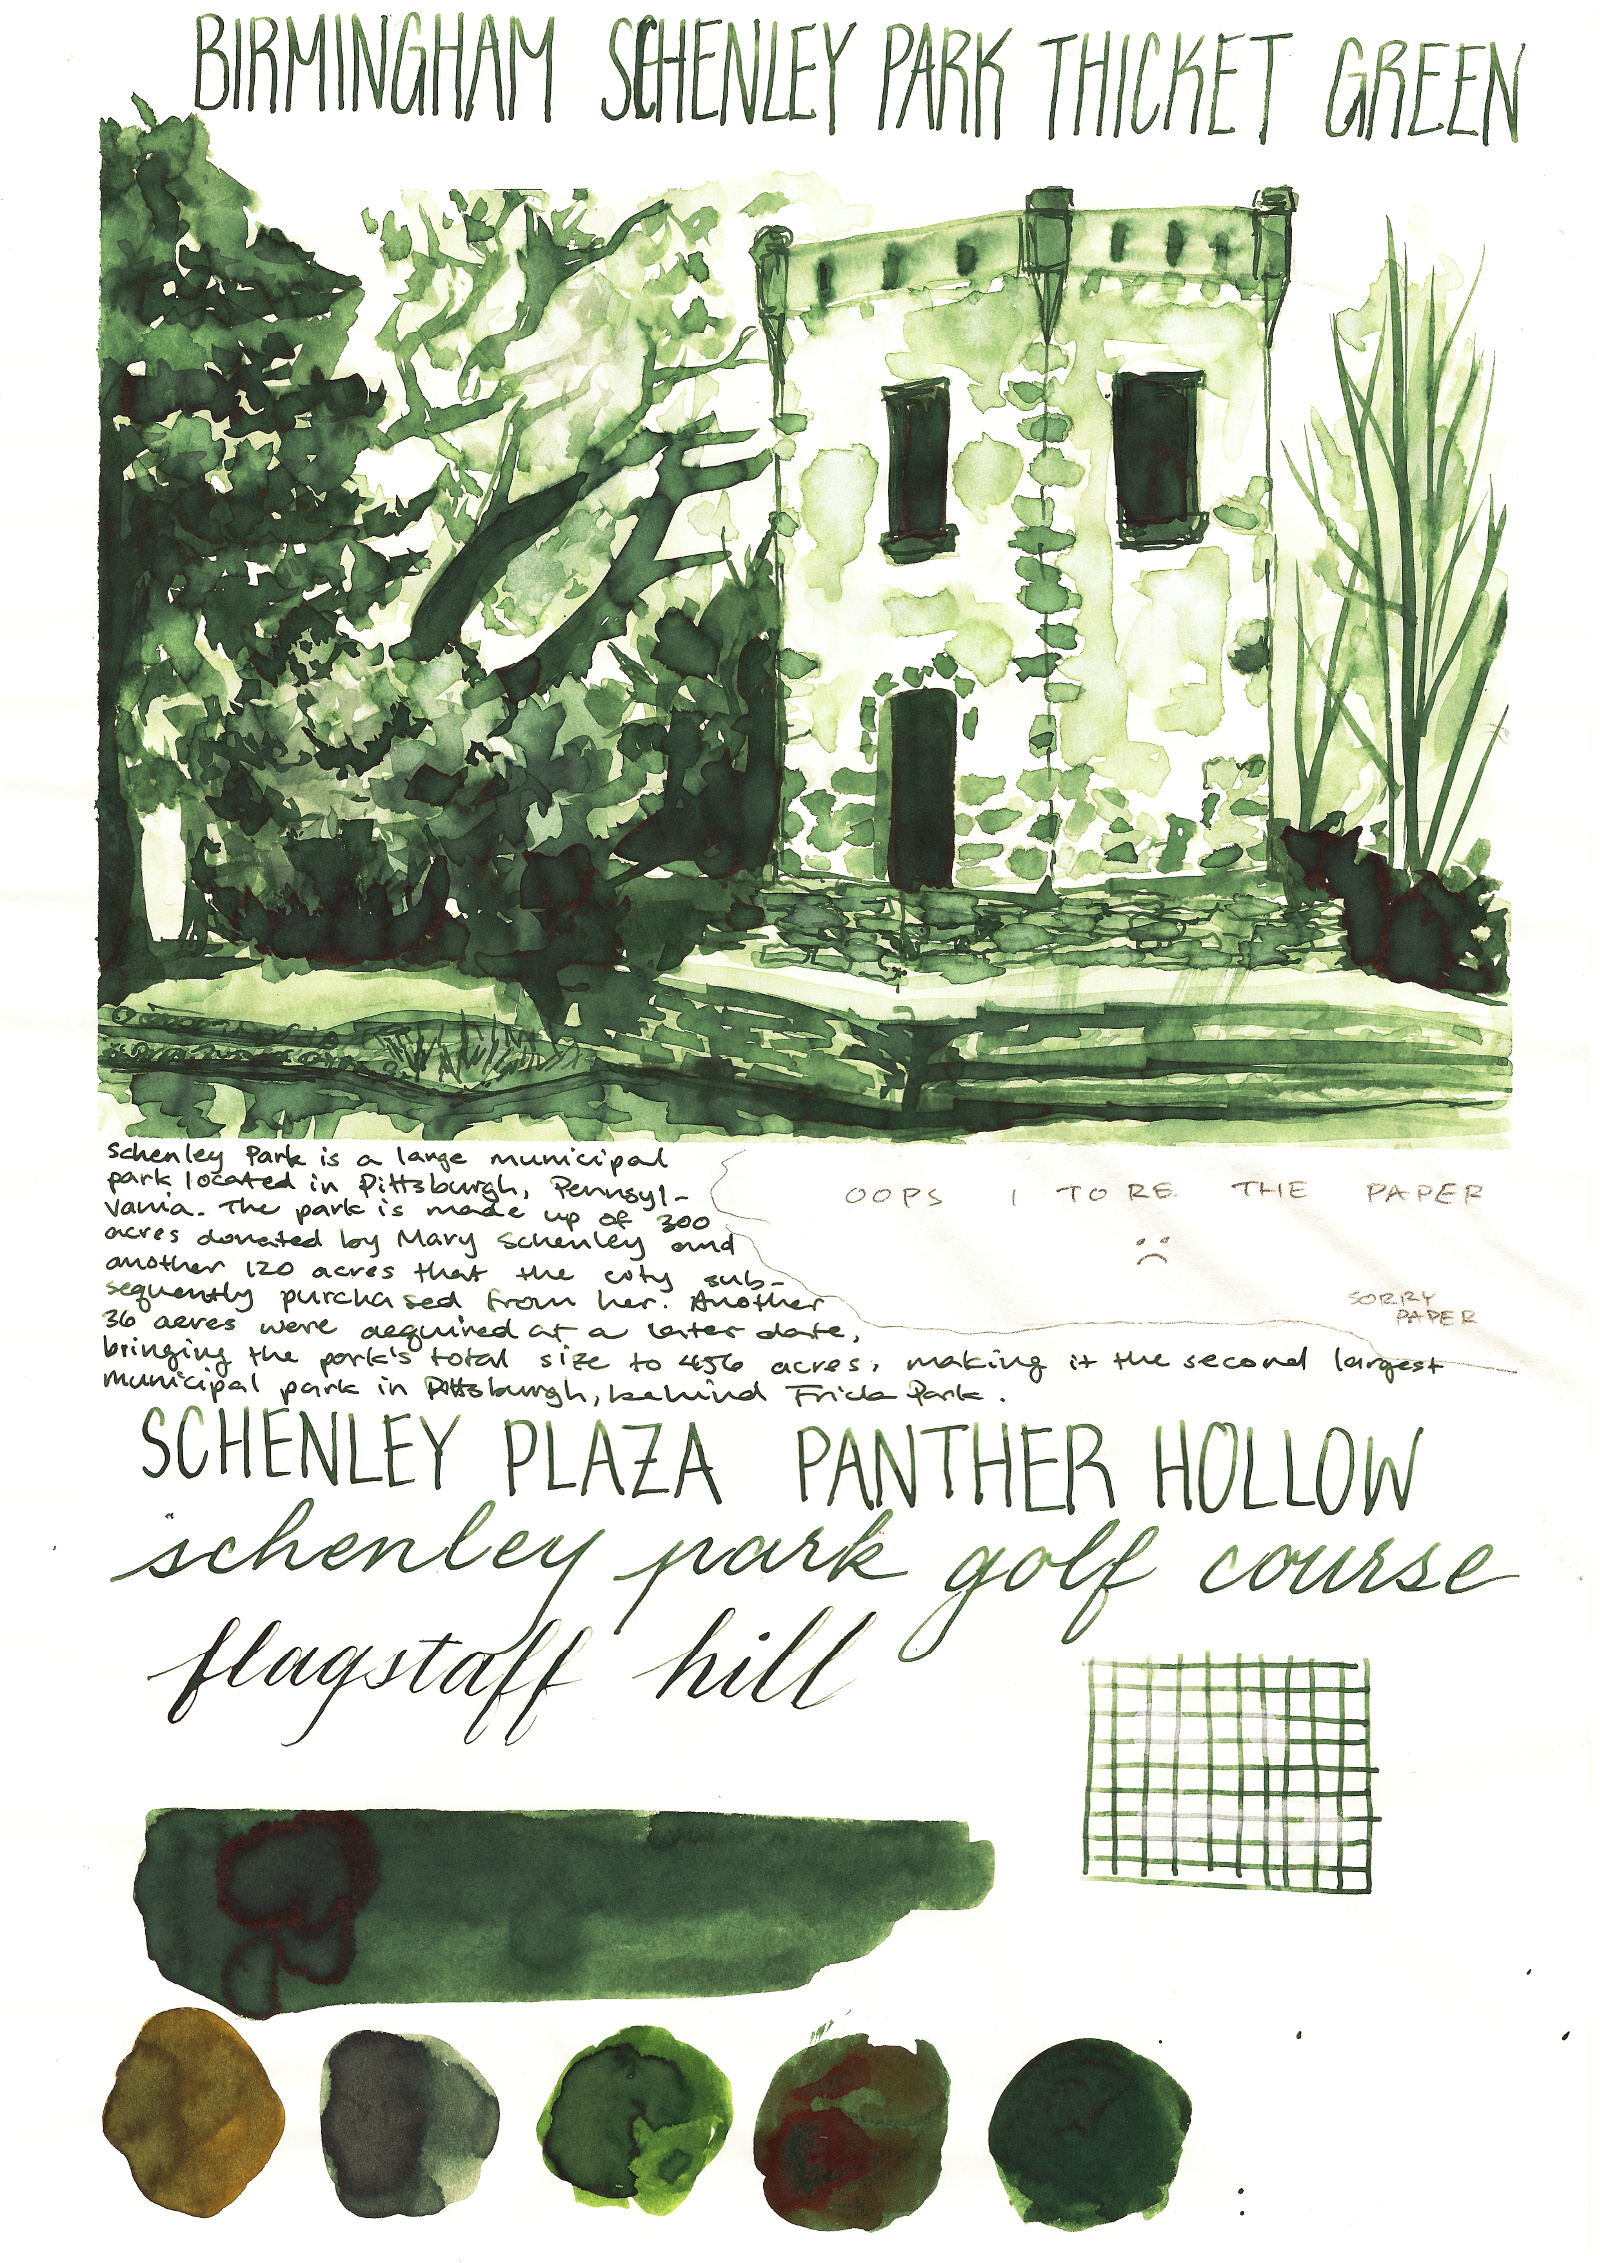 BIRMINGHAM SCHENLEY PARK THICKET GREEN
Schenley Park is a large municipal
park located in Pittsburgh, Pennsyl-
vania. The park is made up of 300
acres donated by Mary Schenley and
another 120 acres that the coty sub-
sequently purchased from her. Another
36 acres were acquired at a later date,
bringing the park's total size to 456 acres, making it the second largest
municipal park in Pittsburgh, behind Frick Park.
OOPS I TORE THE PAPER
:(
SORRY
PAPER
SCHENLEY PLAZA PANTHER HOLLOW
schenley park golf course
flagstaff hill